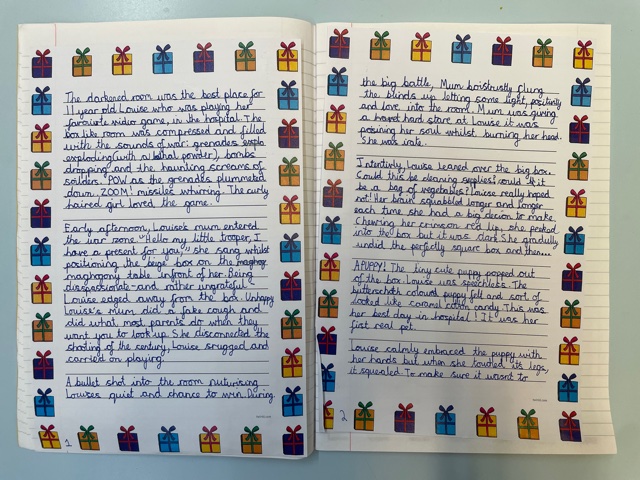 The darkened room was the best place for
11 year old Louise who was playing her
favourite video game, in the hospital. The
box like room was compressed and filled
with the sounds of war: grenades
exploding (with a lethal powder), bombs
dropping and the haunting screams of
soilders. POW as the grenades plummeted
down. ZOOM! missiles whirring. The curly
haired girl loved the game.
Early afternoon, Louise's mum entered
the war zone "Hello my little trooper, I
have a present for you," she sang whilst
positioning the large box on the
maghogony table infront of her. Being
disspassionate and rather ungrateful
Louise edged away from the box. Unhappy
Louise's mum did a fake cough and
did what most parents do when they
want you to look up. She disconnected the
shooting of the century, Louise srugged and
carried on playing.
A bullet shot into the room
Louises quiet and chance to win. During
1
the big battle, Mum flung
the blinds up letting some light, positivity
and love into the room. Mum was giving
a hard stare at Louise it was
poisining her soul whilst burning her head.
She was irate.
Intentivly Louise leaned over the big box.
Could this be cleaning supplies? could it
be a bag of vegetables? Louise really hoped
not! Her brain squabbled longer and longer
each time she had a big decion to make.
Chewing her crimson red lip, she peaked
into the box but it was dark. She gradually
undid the perfectly square box and then...
A PUPPY! The tiny cute puppy popped out
of the box Louise was speechless. The
butterscotch coloured puppy felt and sort of
looked like caramel cotton candy. This was
her best day in hospital! It was her
first real pet.
Louise calmly embraced the puppy with
her hands but when she touched its legs,
it squealed. To make sure it wasnt to
2